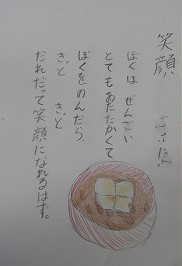 笑顔
ぼくは ぜんざい
とてもあたたかくて
ぼくをのんだら、
きっと きっと
だれだって笑顔になれるはず。